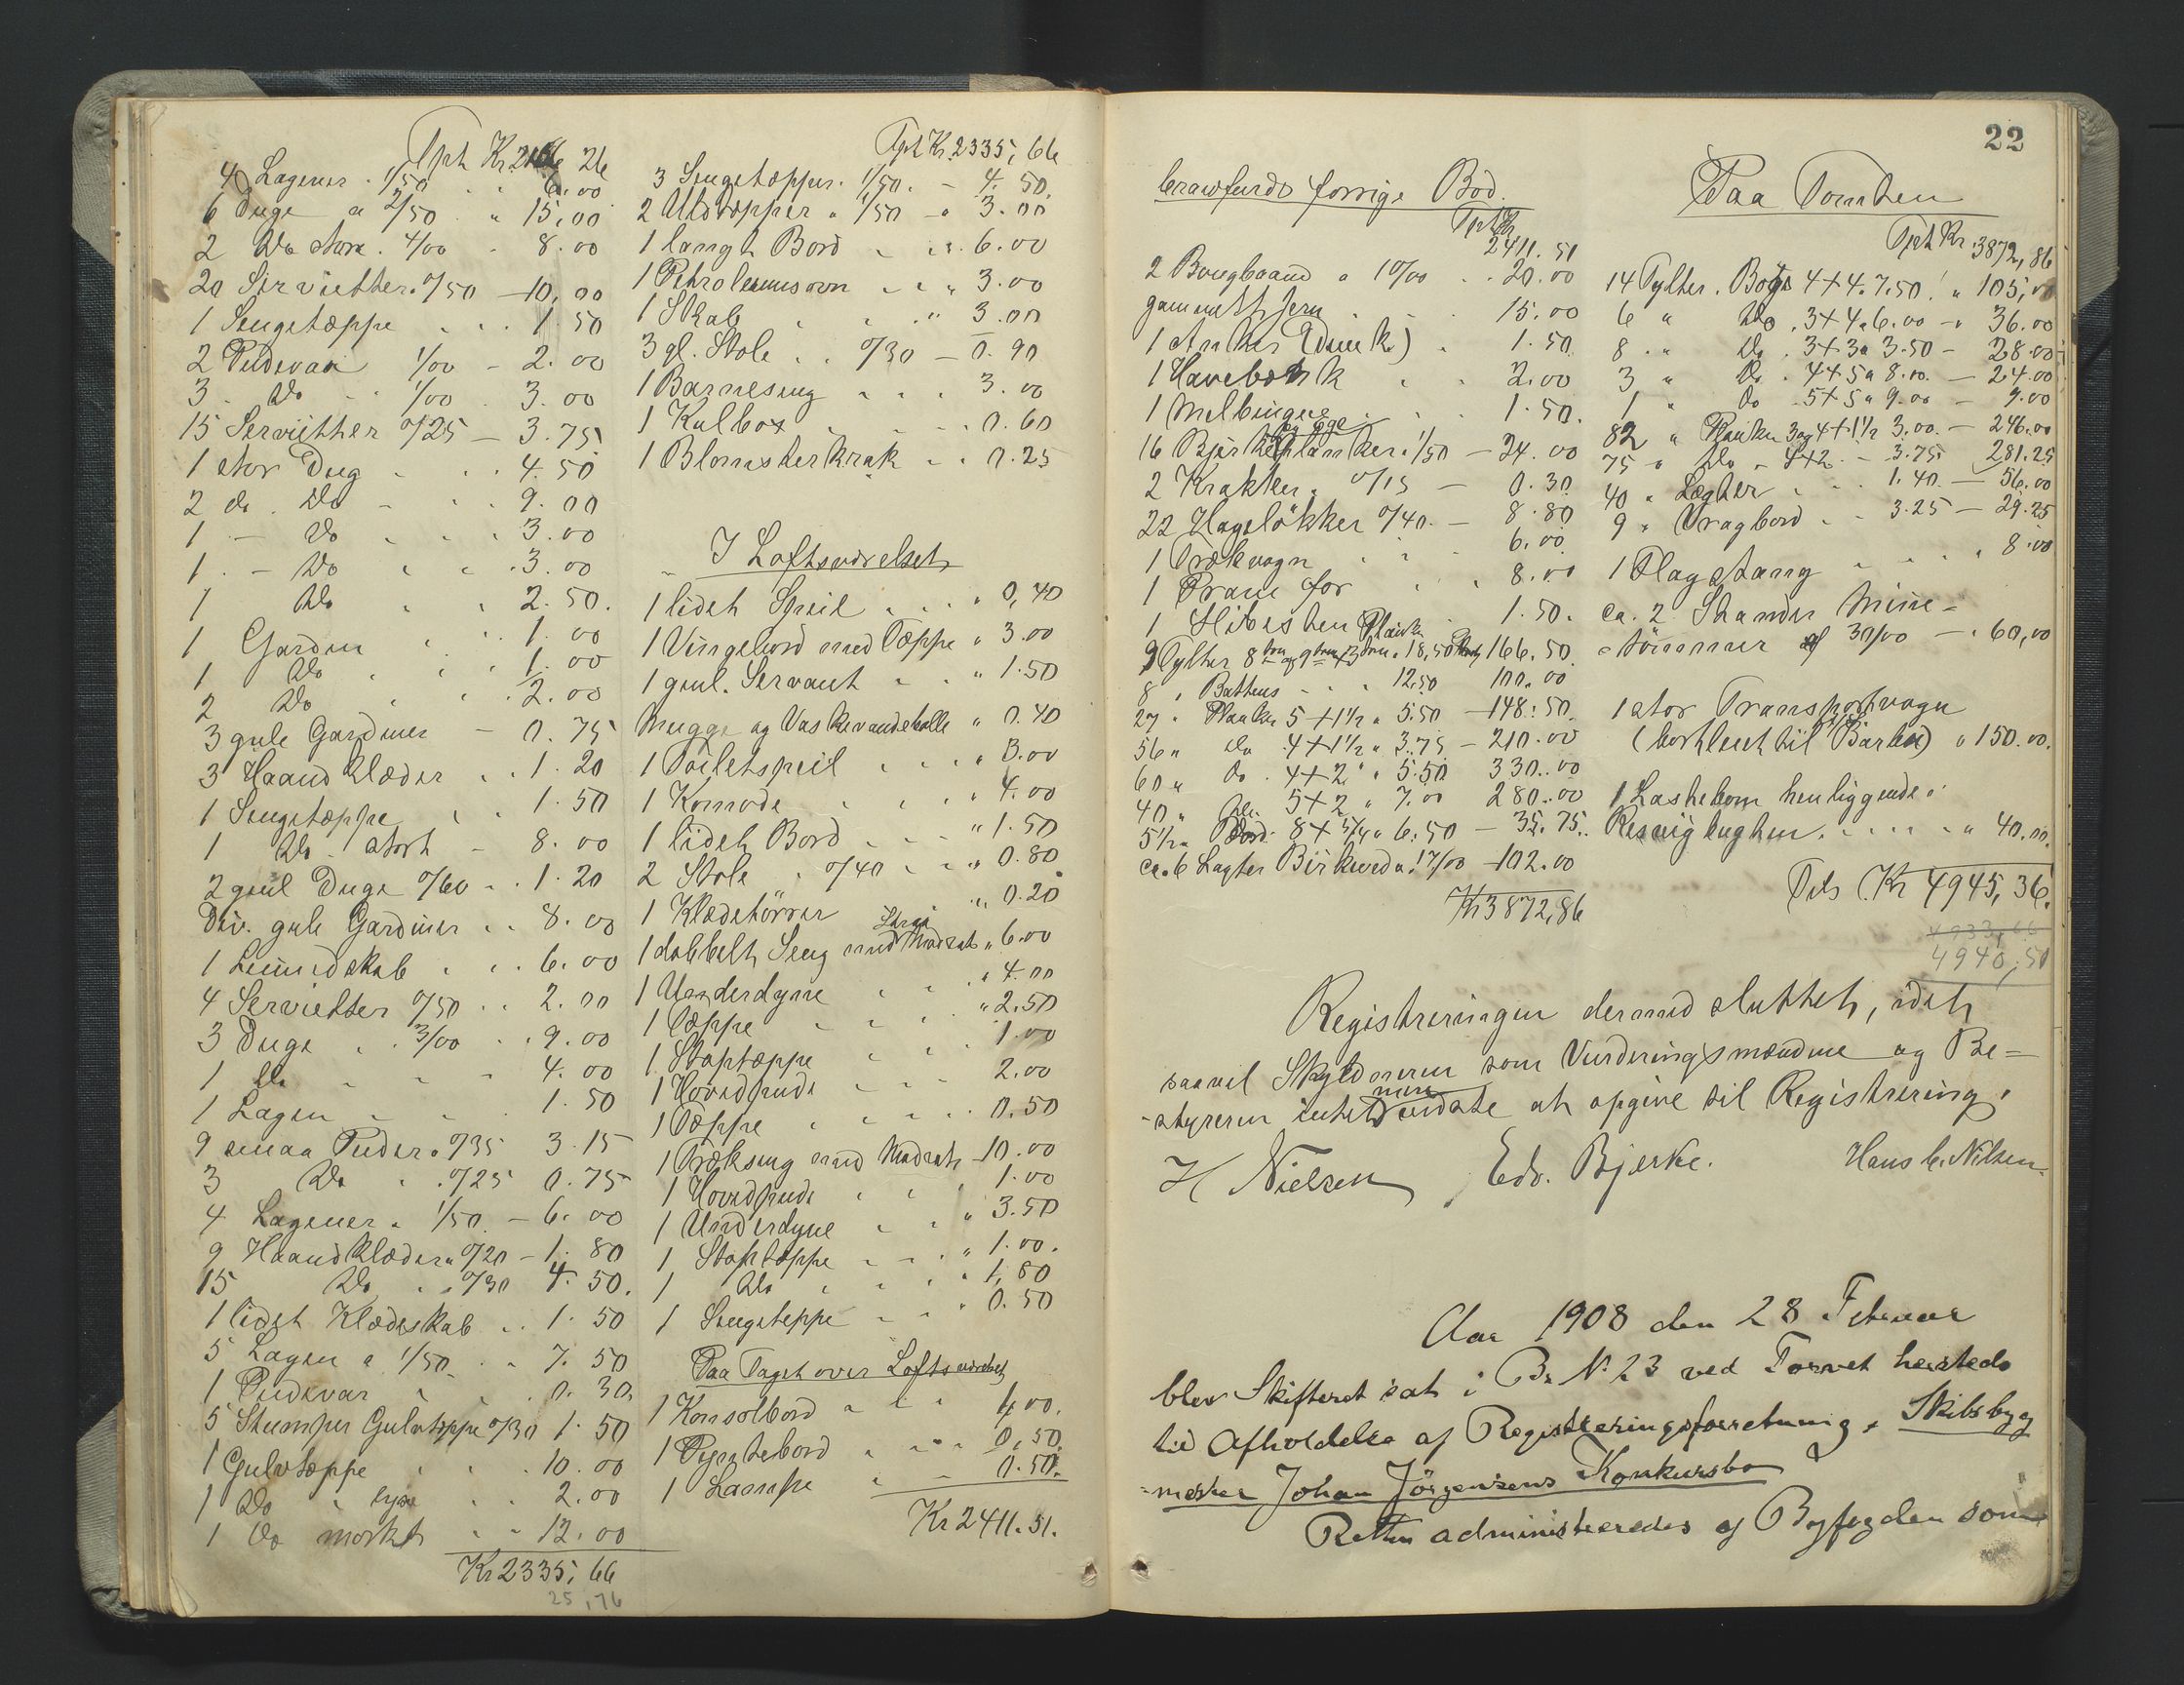 Tpt Kr. 26
4 Lagener. 1/50 " " 6.00
6 Duge a 2/50 " 15,00
2 Do store. 4/00 - 8.00
20 Servietter. 0/50 - 10,00
1 Sengetæppe . . . 1.50
2 Pudevar 1/00 - 2.00
3 Do " 1/00 . 3.00
15 Servietter 0/25 - 3.75
1 stor Dug . . . 4.50
2 do. Do - . . 9.00
1 - Do . . . 3.00
1 - Do . . . 3.00
1 Do . . 2.50.
1 Gardin . . . 1.00
1 Do . . . 1.00
2 Do . . . 2.00
3 gule Gardiner - 0.75
3 Haandklæder . . 1.20
1 Sengetæppe . . 1.50
1 Do. stort - 8.00
2 gul Duge 0/60 . . 1.20
Div. gule Gardiner . . 8.00
1 Linnedskab . . . 6.00
4 Servietter 0/50 . . 2.00
3 Duge . . 3/00 . . 9.00
1 Do - - - 4.00
1 Lagen - - . 1.50
9 smaa Puder. 0/35 3.15
3 Do . . 0/25 0.75
4 Lagener. 1/50 - 6.00
9 Haandklæder. 0/20 - 1.80
15 Do . . 0/30 4.50.
1 lidet Klædeskab . . 1.50
5 Lagen a 1/50 . . 7.50
1 Pudevar . . . 0.30
5 Stumper Gulvtæppe 0/30 1.50
1 Gulvtæppe . . . 10.00
1 Do " lyse . . 2.00
1 Do mørkt . . 12.00
Kr 2335,66
25,76
Tpt Kr. 2335,66
3 Sengetæpper. 1/50. - 4.50.
2 Uldtæpper " 1/50 - " 3.00
1 langt Bord . . . 6.00
1 Petroleumsovn . . " 3.00
1 Skab . . " 3.00
3 gl. Stole . . 0/30 - 0.90
1 Barneseng . . . 3.00
1 Kulbox . . . 0.60
1 Blomsterkrak . . 0.25
I Loftsværelset
1 lidet Speil . . . " 0,40
1 Vingebord med Tæppe " 3.00
1 gml. Servant . . " 1.50
Mugge og Vaskevandsbolle " 0.40
1 Toiletspeil . . . " 3.00
1 Komode . . . " 4.00
1 lidet Bord . . . " 1.50
2 Stole . 0/40 . . " 0.80
1 Klædetörrer . . " 0.20
1 dobbelt Seng med Madrat. " 6.00
1 Underdyne . . . " 4.00
1 Tæppe . . . " 2.50
1 Stoptæppe . . . 1.00
1 Hovedpude . . . 2.00
1 Tæppe . . . . 0.50
1 Trækseng med Madrat - 10.00
1 Hovedpude . . . 1.00
1 Underdyne . . " 3.50
1 Stoptæppe . . . " 1.00.
1 Do . . . " 1,80
1 Sengeteppe . . " 0.50
Paa Taget over Loftsværelset
1 Konsolbord . . " 4,00.
1 Pyntebord . . " 0,50.
1 Lampe . - 0.50.
Kr 2411.51.
22
Crawfurds forrige Bod.
Tpt Kr.
2411.51
2 Bougbaand a 10/00 . . 20.00
gammelt Jern . . . 15.00
1 Anker (Dunk) . 1.50
1 Havebænk . . 2.00
1 Melbinge . . . 1.50.
og Ege
16 Bjerkeplanker. 1/50 - 24.00
2 Krakker. 0/15 - 0.30
22 Hageløkker 0/40. - 8.80
1 Trækvogn . . . 6.00
1 Pram for . . . 8.00
1 Slibesten . . 1.50.
Planker
9 Tylter 8 18,50 166.50.
8 . Battens - - . 12.50 100.00
27 " Planker 5 + 1½ " 5.50 - 148.50.
56 " Do 4 + 1½ " 3.75 - 210.00
60 " Do. 4 + 2 " " 5.50 330.00
40 " Do. 5 + 2 " 7.00 280.00
5½ " Bord 8 + 5/4 " 6.50 - 35.75.
ca. 6 Lagter Birkeved a. 17/00 - 102.00
Kr 3872,86
Paa Tomten
Tpt Kr. 3872,86
14 Tylter. Boys 4 + 4. 7.50. " 105,00
6 " Do . 3 + 4. 6.00 - " 36.00
8 . " Do . 3 + 3 a 3.50 - 28.00
3 " Do . 4 + 5 a 8.00. - 24.00
1 " Do - 5 + 5 a 9.00 - 9.00
82 " Planker 3 og 4 + 1½ 3.00. - 246.00
75 " Do - 4 + 2 - 3.75. 281.25
40 " Lægter . . . 1.40. - 56.00
9 " Vragbord . . 3.25 - 29.25
1 Flagstang . . . . 8.00
ca. 2 Stander Mine-
-tömmer af 30/00 - " 60,00
1 stor Transportvogn
(bortleiet til ) " 150.00.
1 Lastebom henliggende .
. . . . . " 40.00.
Tils. Kr 4945,36.
4940,51
Registreringen dermed sluttet, idet
saavel Skyldneren som Vurderingsmændene og Be=
mere
-styreren intet vidste at opgive til Registrering.
H Nielsen Edv. Bjerke. Hans C. Nilsen.
Aar 1908 den 28 Februar
blev Skifteret sat i B. No. 23 ved Torvet hersteds
til Afholdelse af Registreringsforretning i Skibsbyg
-mester Johan Jörgensens Konkursbo
Retten administreredes af Byfogden som